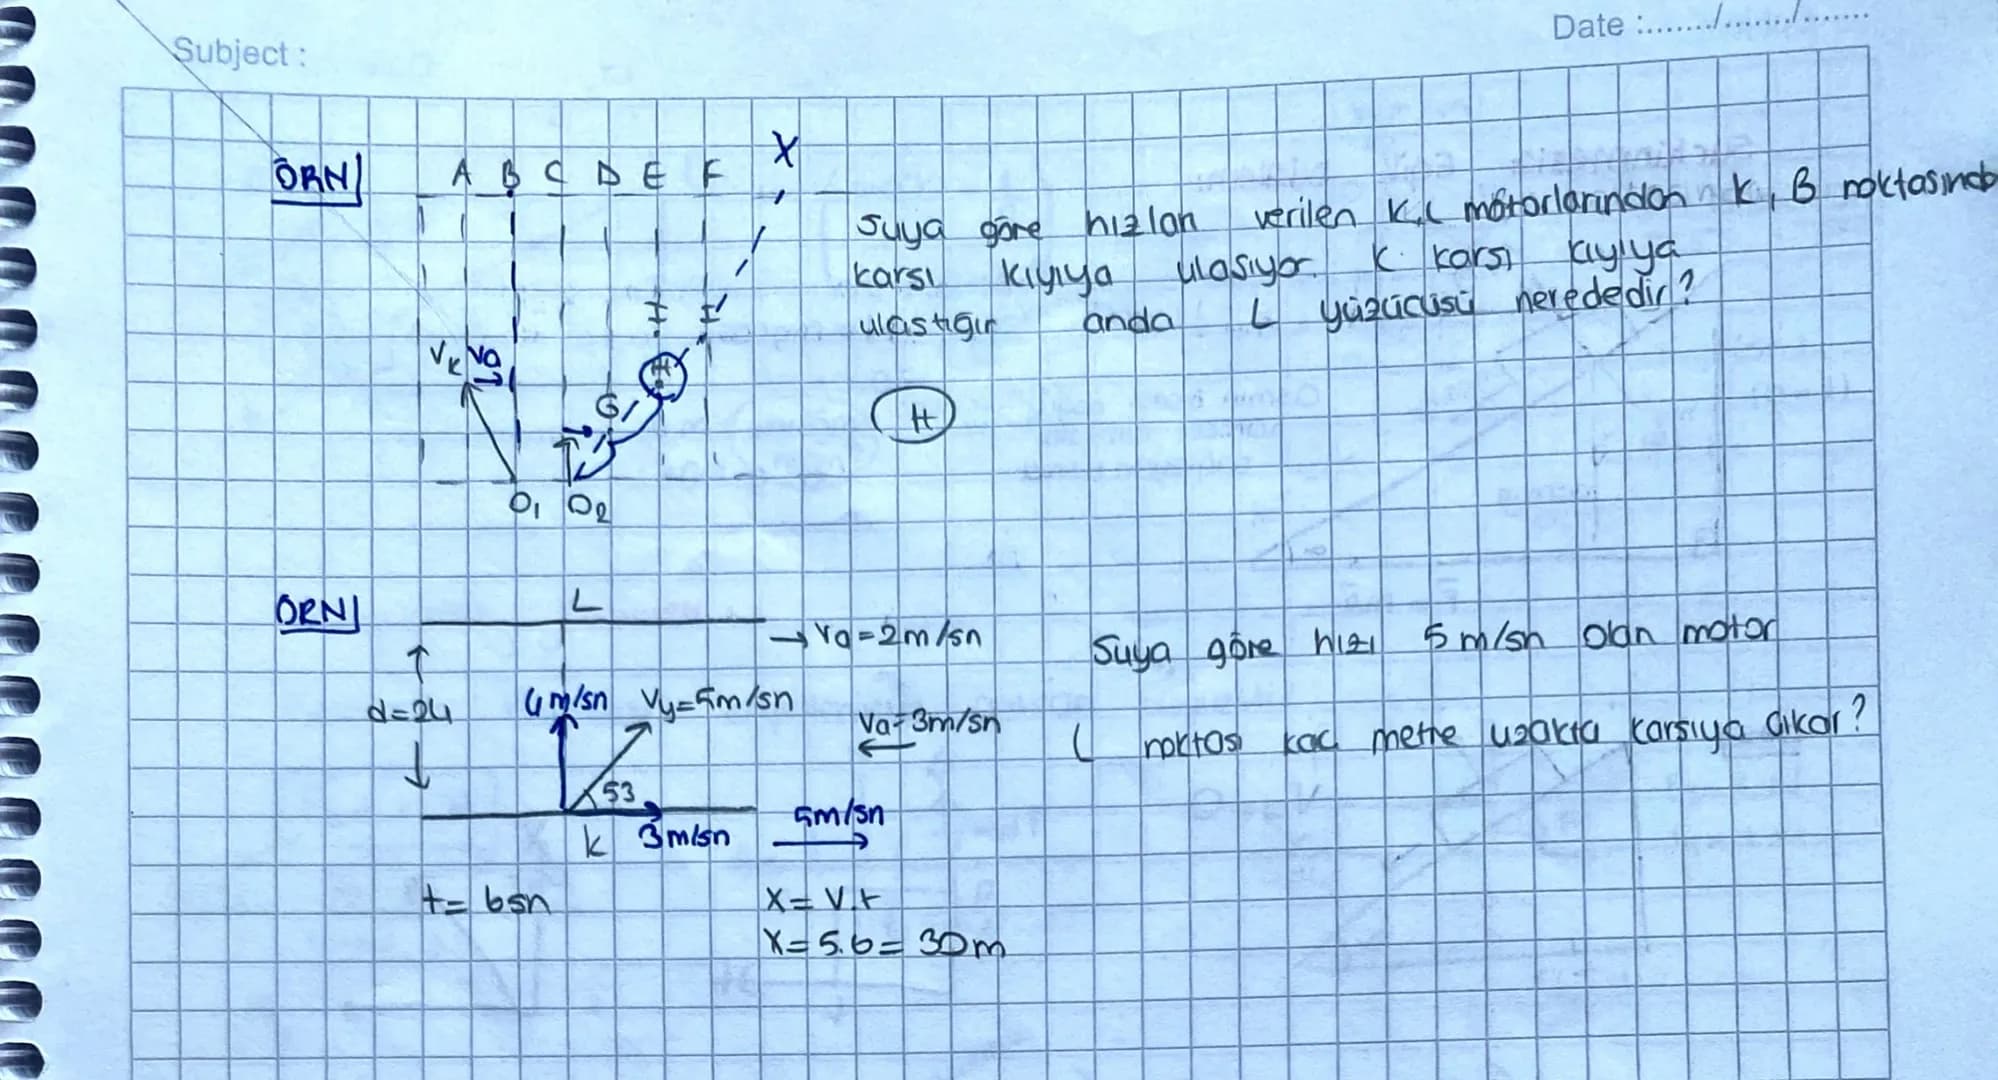 Subject :
Date :......./......./.......
ÖRN
A B C D E F X
Suya göre hızları verilen K, L motorlarından K, B noktasında
karsı kıyıya ulasıyor. K karsı kıyıya
ulastıgır anda L yüzücüsü nerededir?
I I
VK Va
H
G
H
O1 O2
ÖRN
L
→ Va=2m/sn
Suya göre hızı 5m/sn olan motor
d=24
4m/sn Vy=5m/sn
Va=3m/sn
L noktası kac metre uzakta karsıya cıkar?
53
K 3m/sn
5m/sn
t= 6sn
X= V.t
X= 5.6= 30m